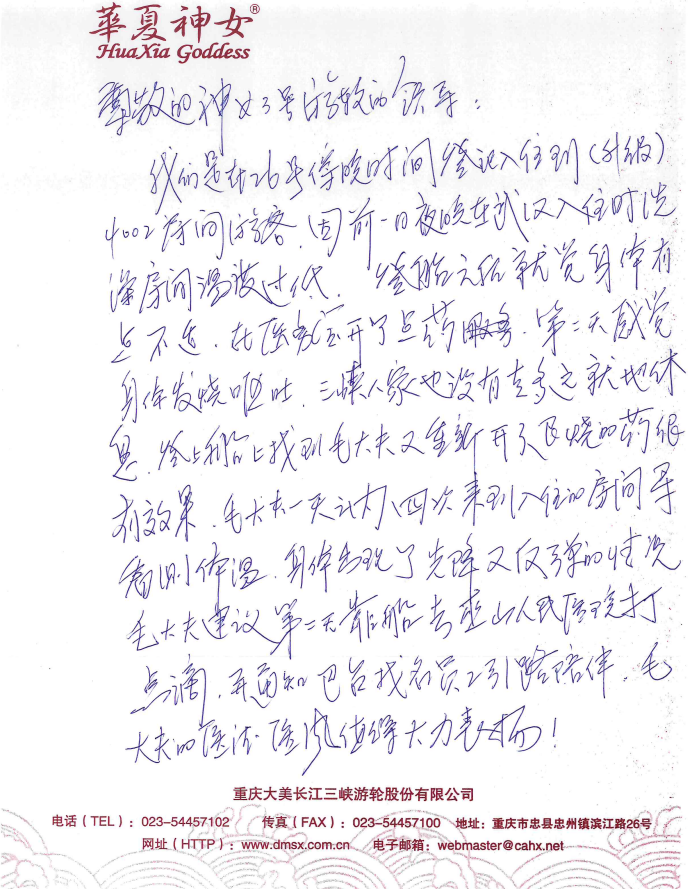 華夏神女®
HuaXia Goddess
尊敬的神女3号游轮的领导:
我们是在26号傍晚时间登记入住到(升级)
4002房间游客,因前一日夜晚在武汉入住时洗
澡房间温度过低,登船之后就觉身体有
点不适,在医务室开了点药服务,第二天感觉
身体发烧呕吐,三峡人家也没有去多走就地休
息,登上船上找到毛大夫又重新开了退烧的药很
有效果,毛大夫一天之内四次来到入住的房间寻
看测体温,身体出现了先降又反弹的情况
毛大夫建议第二天靠船去巫山人民医院打
点滴,并通知巴台找名员工引路陪伴,毛
大夫的医德医风值得大力表扬!
重庆大美长江三峡游轮股份有限公司
电话(TEL):023-54457102 传真(FAX):023-54457100 地址:重庆市忠县忠州镇滨江路26号
网址(HTTP):www.dmsx.com.cn 电子邮箱:webmaster@cahx.net